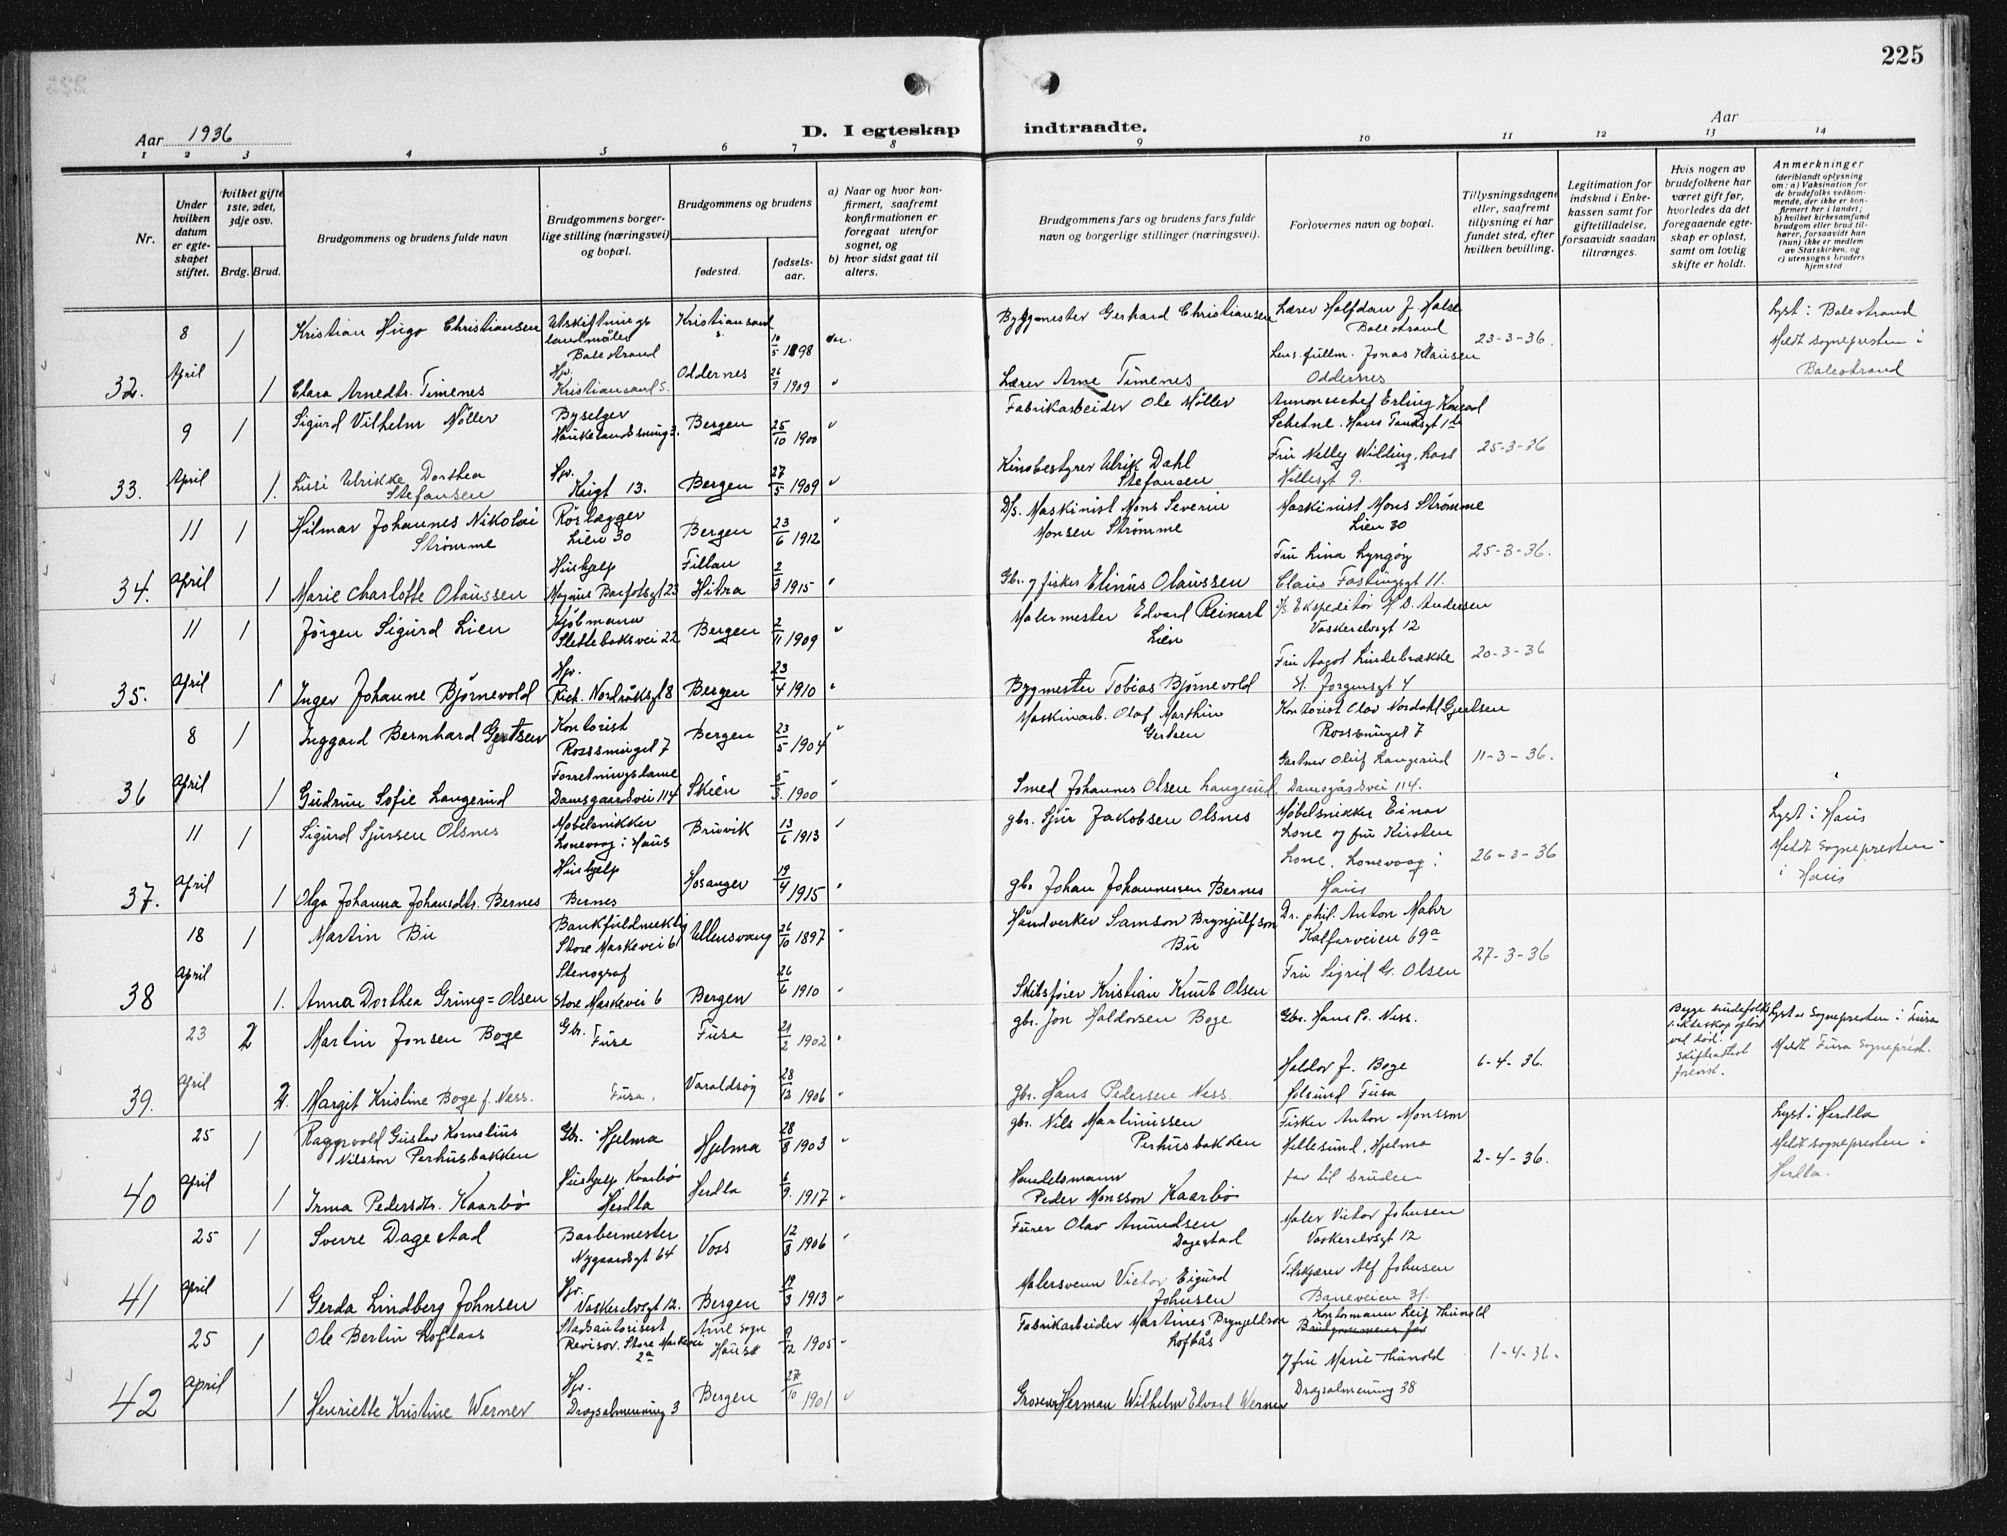 225
Aar 1936
D. I egteskap indtraadte.
Aar
1 2 3 4 5 6 7 8 9 10 11 12 13 14
Nr.
Under hvilken datum er egteskapet stiftet.
Hvilket gifte 1ste, 2det, 3dje osv.
Brdg. Brud.
Brudgommens og brudens fulde navn
Brudgommens borgerlige stilling (næringsvei) og bopæl.
Brudgommens og brudens
fødested.
fødselsaar.
a) Naar og hvor konfirmert, saafremt konfirmationen er foregaat utenfor sognet, og
b) hvor sidst gaat til alters.
Brudgommens fars og brudens fars fulde navn og borgerlige stillinger (næringsvei).
Forlovernes navn og bopæl.
Tillysningsdagene eller, saafremt tillysning ei har fundet sted, efter hvilken bevilling.
Legitimation for indskud i Enkekassen samt for giftetilladelse, forsaavidt saadan tiltrænges.
Hvis nogen av brudefolkene har været gift før, hvorledes da det foregaaende egteskap er opløst, samt om lovlig skifte er holdt.
Anmerkninger
(deriblandt oplysning om: a) Vaksination for de brudefolks vedkommende, der ikke er konfirmert her i landet; b) hvilket kirkesamfund brudgom eller brud tilhører, forsaavidt han (hun) ikke er medlem av Statskirken, og c) utensogns bruders hjemsted
32. 8 April
1 Kristian Hugo Christiansen Utskiftningslandmåler Balestrand Kristiansand s. 10/5 1898
Byggmester Gerhard Christiansen Lærer Halfdan J. Balestrand 23-3-36. Lyst i Balestrand
1 Clara Arnedtr. Timenes Hjv. Kristiansand S. Oddernes 26/9 1909 "
Lærer Arne Timenes Lens. fullm. Jonas Klausen Oddernes Meldt sognepresten i Balestrand
33. 9 April
1 Sigurd Vilhelm Møller Byselger Haukelandssving 3. Bergen 25/10 1900 "
Fabrikarbeider Ole Møller Annonsechef Erling Konrad Hans Tanksgt 25-3-36
1. Lissi Ulrikke Dorthea Stefansen Hjv. Krigt 13. Bergen 27/5 1909 "
Kinobestyrer Ulrik Dahl Stefansen Fru Nelly Wilding, Hillesgt 9.
34. 11 April
1 Hilmar Johannes Nikolai Strømme Rørlægger Lien 30 Bergen 23/6 1912 "
D/s. Maskinist Mons Severin Monsen Strømme Maskinist Mons Strømme Lien 30 25-3-36.
1 Marie Charlotte Olaussen Hushjelp Magnus Barfotsgt 23 Fillan Hitra 2/3 1915 "
Gbr. og fisker Elinus Olaussen Fru Lina Lyngøy Claus Fastingsgt 11.
35. 11 April
1 Jørgen Sigurd Lien Kjøbmann Slettebaksvei 22 Bergen 2/11 1909 "
Malermester Edvard Reinart Lien Ekspeditør H. D. Andersen Vaskerelvsgt 12 20-3-36
1 Inger Johanne Bjørnevold Hjv. Rich. Nordråksgt 8 Bergen 23/4 1910 "
Bygmester Tobias Bjørnevold Fru Aagot Lindebrække St. Jørgensgt 4
36 8 April
1 Inggard Bernhard Gertsen Kontorist Rosesmuget 7 Bergen 23/5 1904 "
Maskinarb. Olaf Marthin Gertsen Kontorist Olav Nordahl Gjertsen Rosesmuget 7 11-3-36.
1 Gudrun Sofie Langerud Forretningsdame Damsgaardsvei 114 Skien 5/3 1900 "
Smed Johannes Olsen Langerud Gartner Oluf Langerud Damsgårdsvei 114.
37. 11 April
1 Sigurd Sjursen Olsnes Møbelsnikker Lonevaag i Haus Bruvik 13/6 1913 "
gbr. Sjur Jakobsen Olsnes Møbelsnikker Einar Lone og fru Kirsten Lone, Lonevaag i Haus 26-3-36 Lyst i Haus
1 Olga Johanna Johansdtr. Bernes Hushjelp Bernes Hosanger 19/4 1915 "
gbr Johan Johannessen Bernes Meldt sognepresten i Haus
38 18 April
1 Martin Bu Bankfuldmektig Store Markevei 6 Ullensvang 26/10 1897 "
Håndverker Samson Brynjulfson Bu Dr. phil. Anton Mohr Kalfarveien 69a 27-3-36
1. Anna Dorthea Grung=Olsen Stenograf Store Markevei 6 Bergen 26/6 1910 "
Skibsfører Kristian Knut Olsen Fru Sigrid G. Olsen
39. 23 April
2 Martin Jonsen Boge Gbr. Fusa Fusa 21/2 1902 "
gbr. Jon Haldorsen Boge Gbr. Hans P. Ness. 6-4-36. Begge brudefolks ekteskap opløst ved død. Skifteattest forevist. Lyst av Sognepresten i Fusa
2. Margit Kristine Boge f. Ness. Fusa. Varaldsøy 28/12 1906 "
gbr. Hans Pedersen Ness. Haldor J. Boge Fusa Meldt Fusa sogneprest.
40 25 April
1 Ragnvald Gustav Kornelius Nilsson Perhusbakken Gbr. Hjelma Hjelma 28/8 1903 "
gbr. Nils Martinussen Perhusbakken Fisker Anton Monsson Hillesund, Hjelma 2-4-36. Lyst i Herdla
1 Irma Pedersdtr. Kaarbø Hushjelp Kaarbø Herdla Herdla 6/9 1917 "
Handelsmann Peder Monsson Kaarbø far til bruden Meldt sognepresten i Herdla.
41 25 April
1 Sverre Dagestad Barbermester Nygaardsgt 64 Voss 12/8 1906 "
Furer Olav Amundsen Dagestad Maler Victor Johnsen Vaskerelvsgt 12
1 Gerda Lindberg Johnsen Hjv. Vaskerelvsgt 12. Bergen 19/3 1913 "
Malersvenn Victor Eigurd Johnsen Tilskjærer Alf Johnsen Baneveien 31.
42 25 April
1 Ole Bertin Loftaas Stadsautorisert Revisor. Store Markevei 2a Arne sogn Haus 9/12 1905 "
Fabrikarbeider Martines Brynjeldson Loftås Kontormann Leif Thunold 1-4-36.
1 Henriette Kristine Werner Hjv. Dragsalmenning 3 Bergen 27/10 1901 "
Herman Wilhelm Edvard Werner og fru Marie Thunold Dragsalmening 38